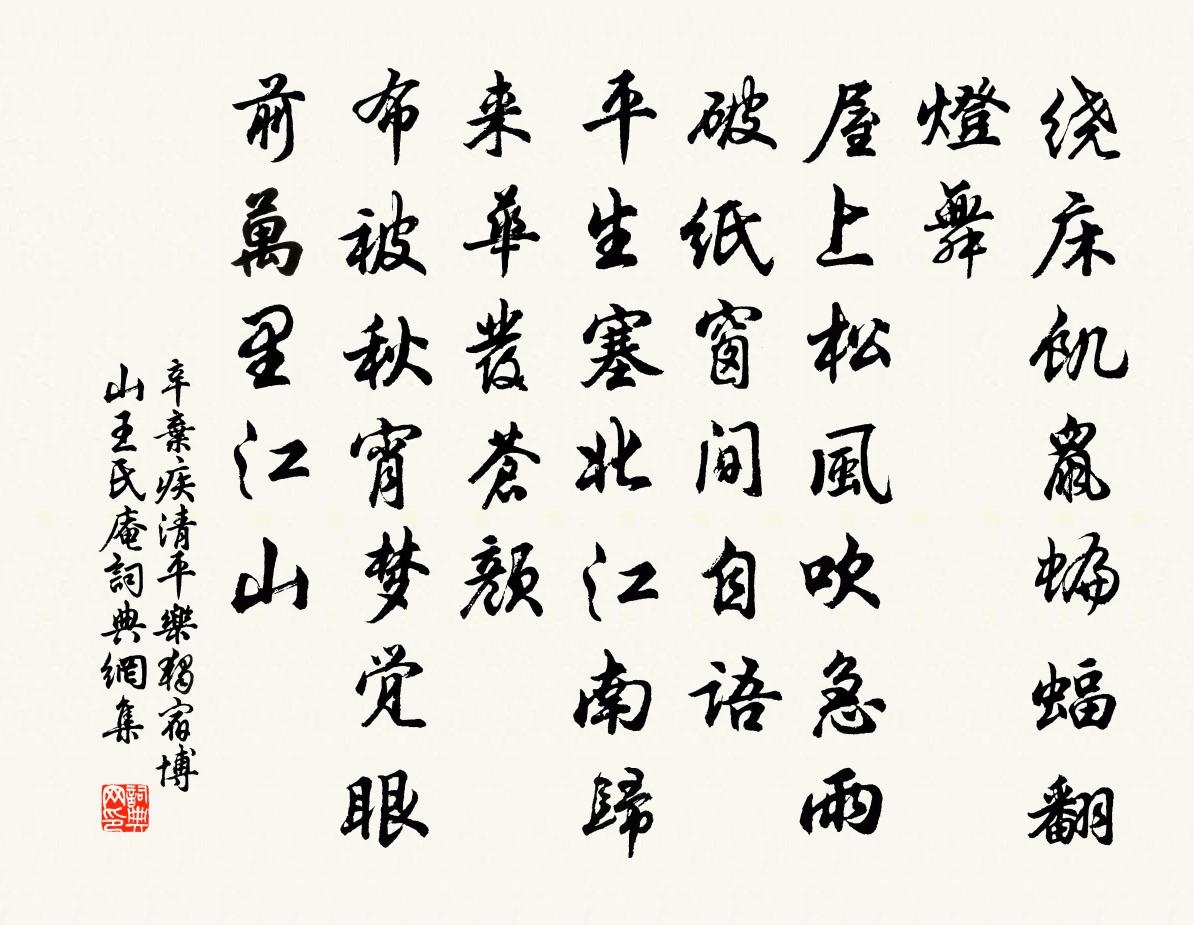 绕床飢鼠蝙蝠翻
燈舞
屋上松風吹急雨
破纸窗间自语
平生塞北江南歸
来華髮蒼顔
布被秋宵梦觉眼
前萬里江山
辛棄疾清平樂獨宿博
山王氏庵詞典網集
詞典网印